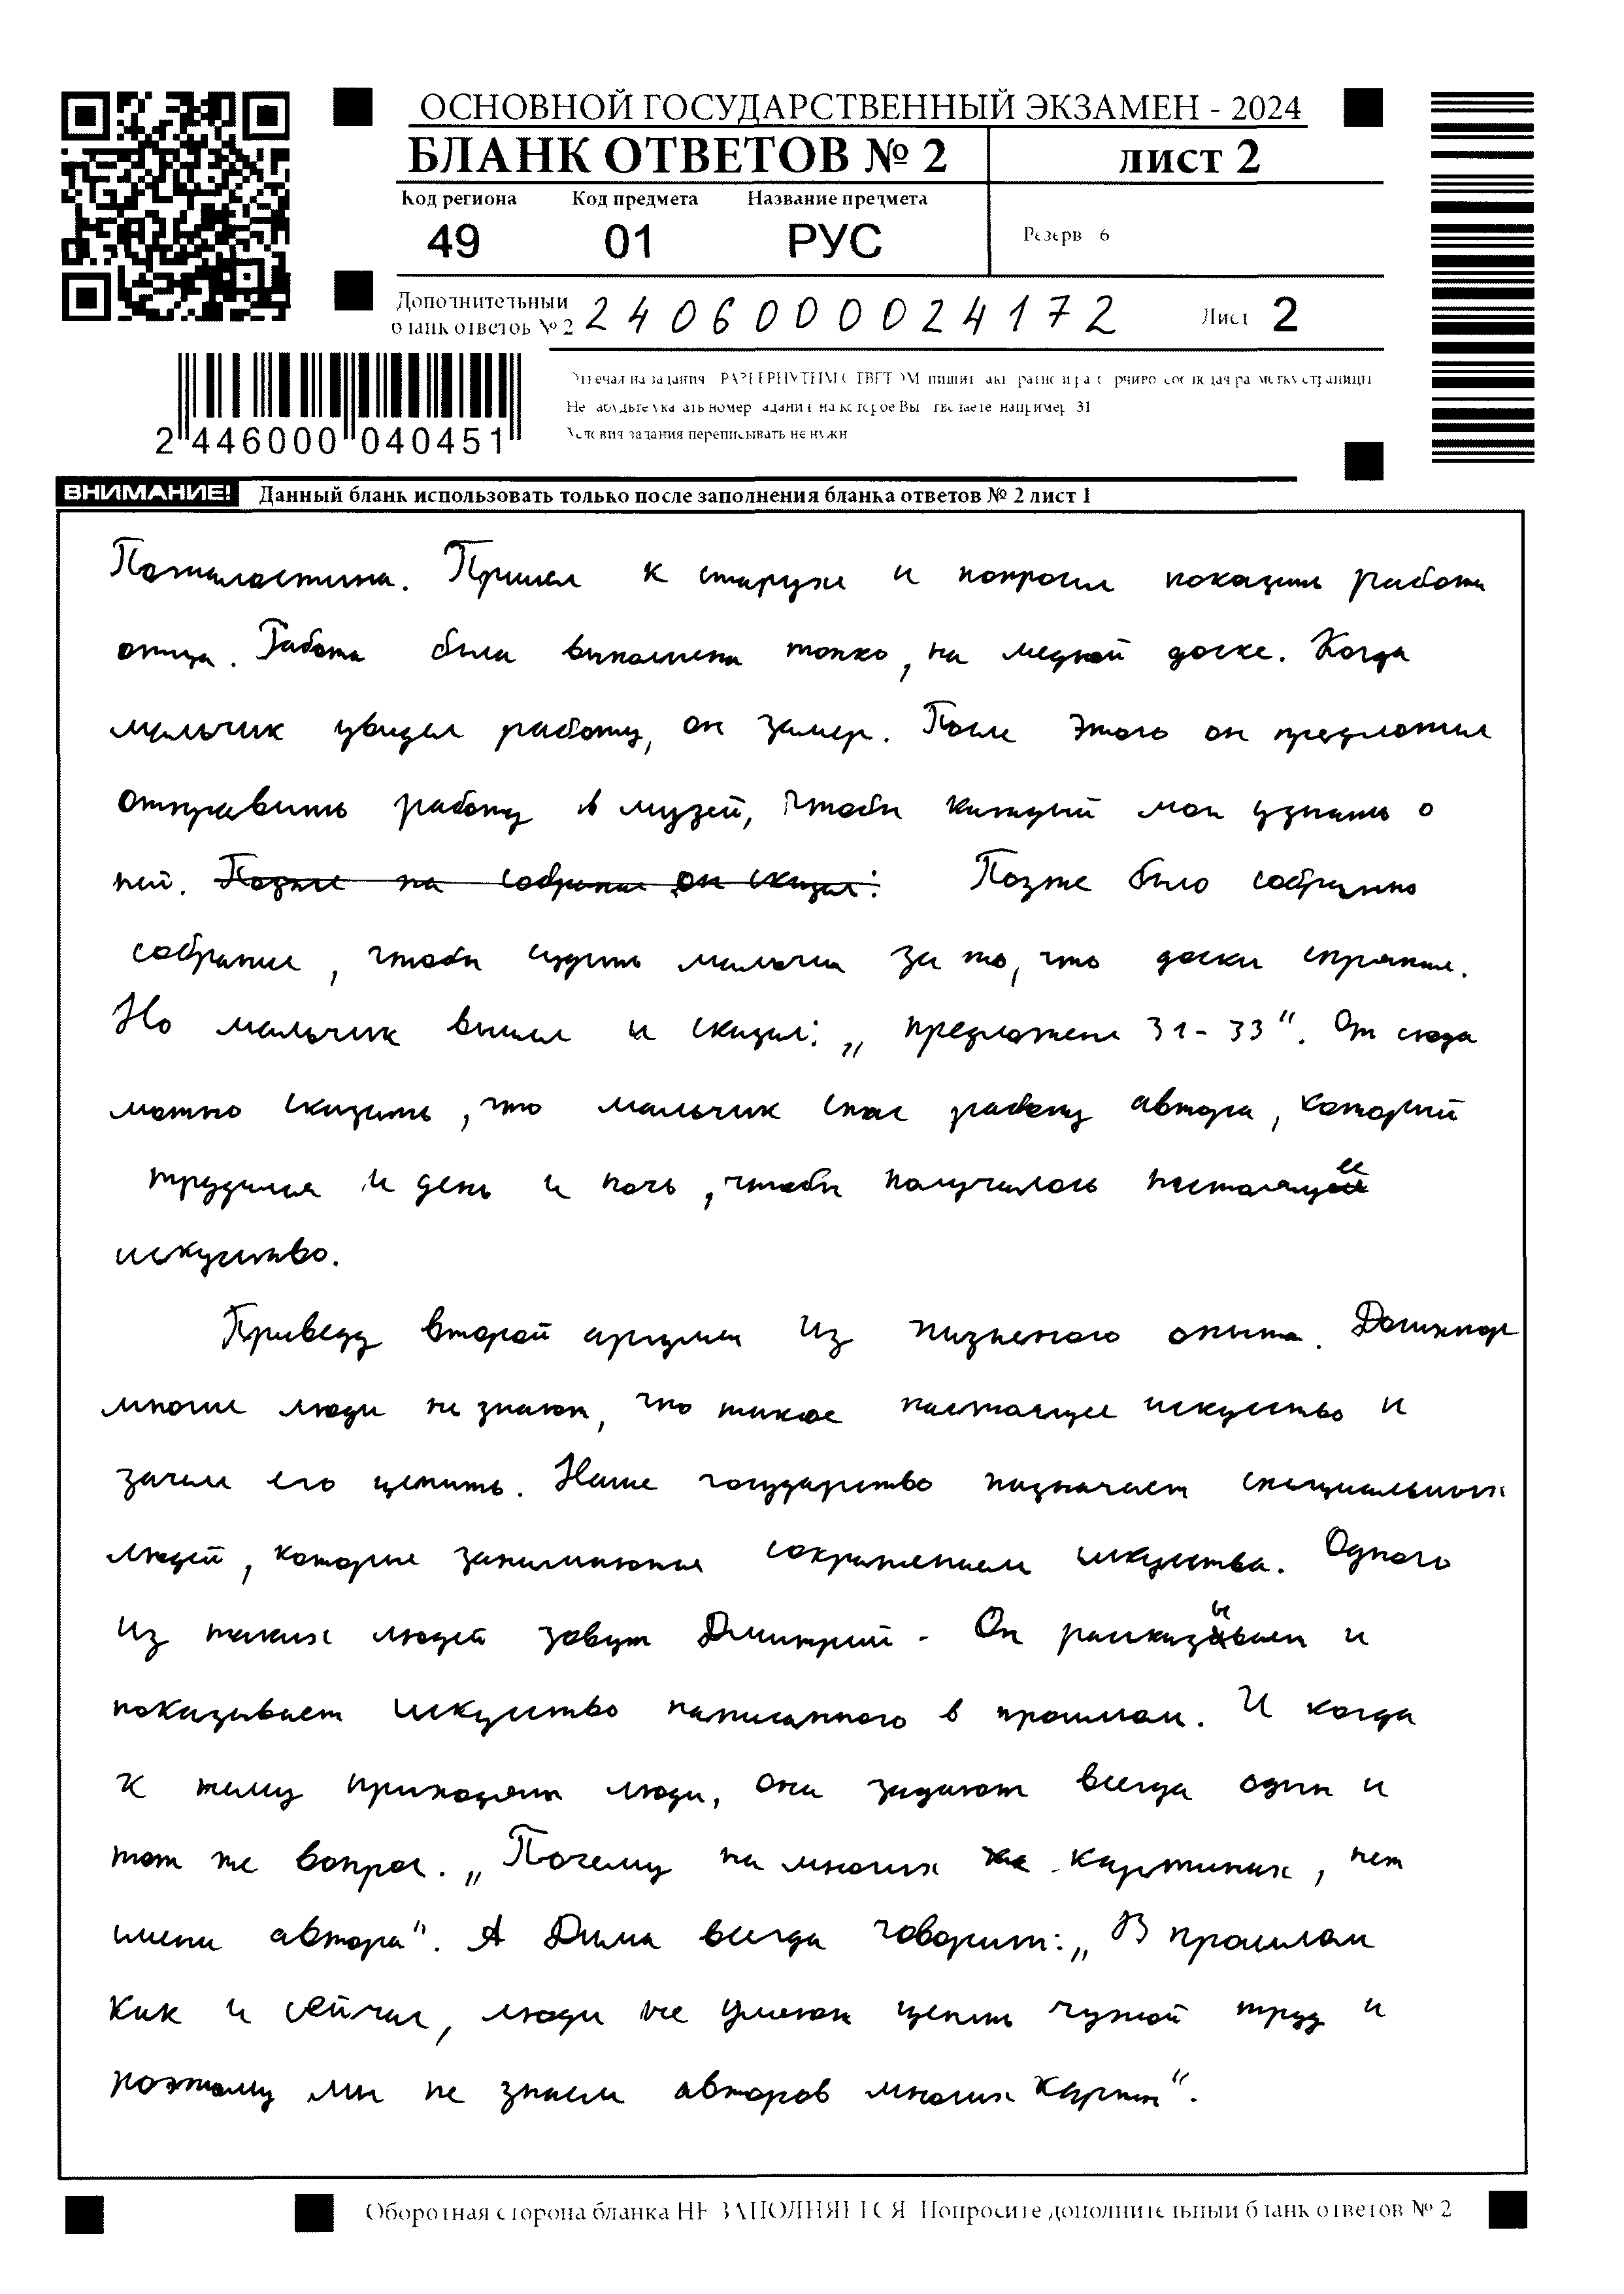 ОСНОВНОЙ ГОСУДАРСТВЕННЫЙ ЭКЗАМЕН - 2024
БЛАНК ОТВЕТОВ № 2
лист 2
Код региона Код предмета Название предмета
49 01 РУС
Резерв 6
Дополнительный
бланк ответов № 2
2406000024172
Лист 2
2 446000 040451
Не забудьте указать номер задания на которое Вы отвечаете например 31
Условия задания переписывать не нужн
ВНИМАНИЕ! Данный бланк использовать только после заполнения бланка ответов № 2 лист 1
Пожалостина. Пришел к старухе и попросил показать работы
отца. Работа была выполнена тонко, на медной доске. Когда
мальчик увидел работу, он замер. После этого он предложил
отправить работу в музей, чтобы каждый мог узнать о
ней. Позже на собрание он сказал: Позже было собранно
собрание, чтобы судить мальчика за то, что доски спрятал.
Но мальчик вышел и сказал: „предложение 31-33“. От сюда
можно сказать, что мальчик спас работу автора, который
трудился и день и ночь, чтобы получилось настоящее
искуство.
Приведу второй аргумен из жизненого опыта. До сих пор
многие люди не знают, что такое настоящее искуство и
зачем его ценить. Наше государство назначает специальных
людей, которые занимаются сохранением искуства. Одного
из таких людей зовут Дмитрий. Он рассказывает и
показывает искуство написанного в прошлом. И когда
к нему приходят люди, они задают всегда один и
тот же вопрос. „Почему на многих картинах, нет
имени автора“. А Дима всегда говорит: „В прошлом
как и сейчас, люди не умеют ценить чужой труд и
поэтому мы не знаем авторов многих картин“.
Оборотная сторона бланка НЕ ЗАПОЛНЯЕТСЯ Попросите дополнительный бланк ответов № 2